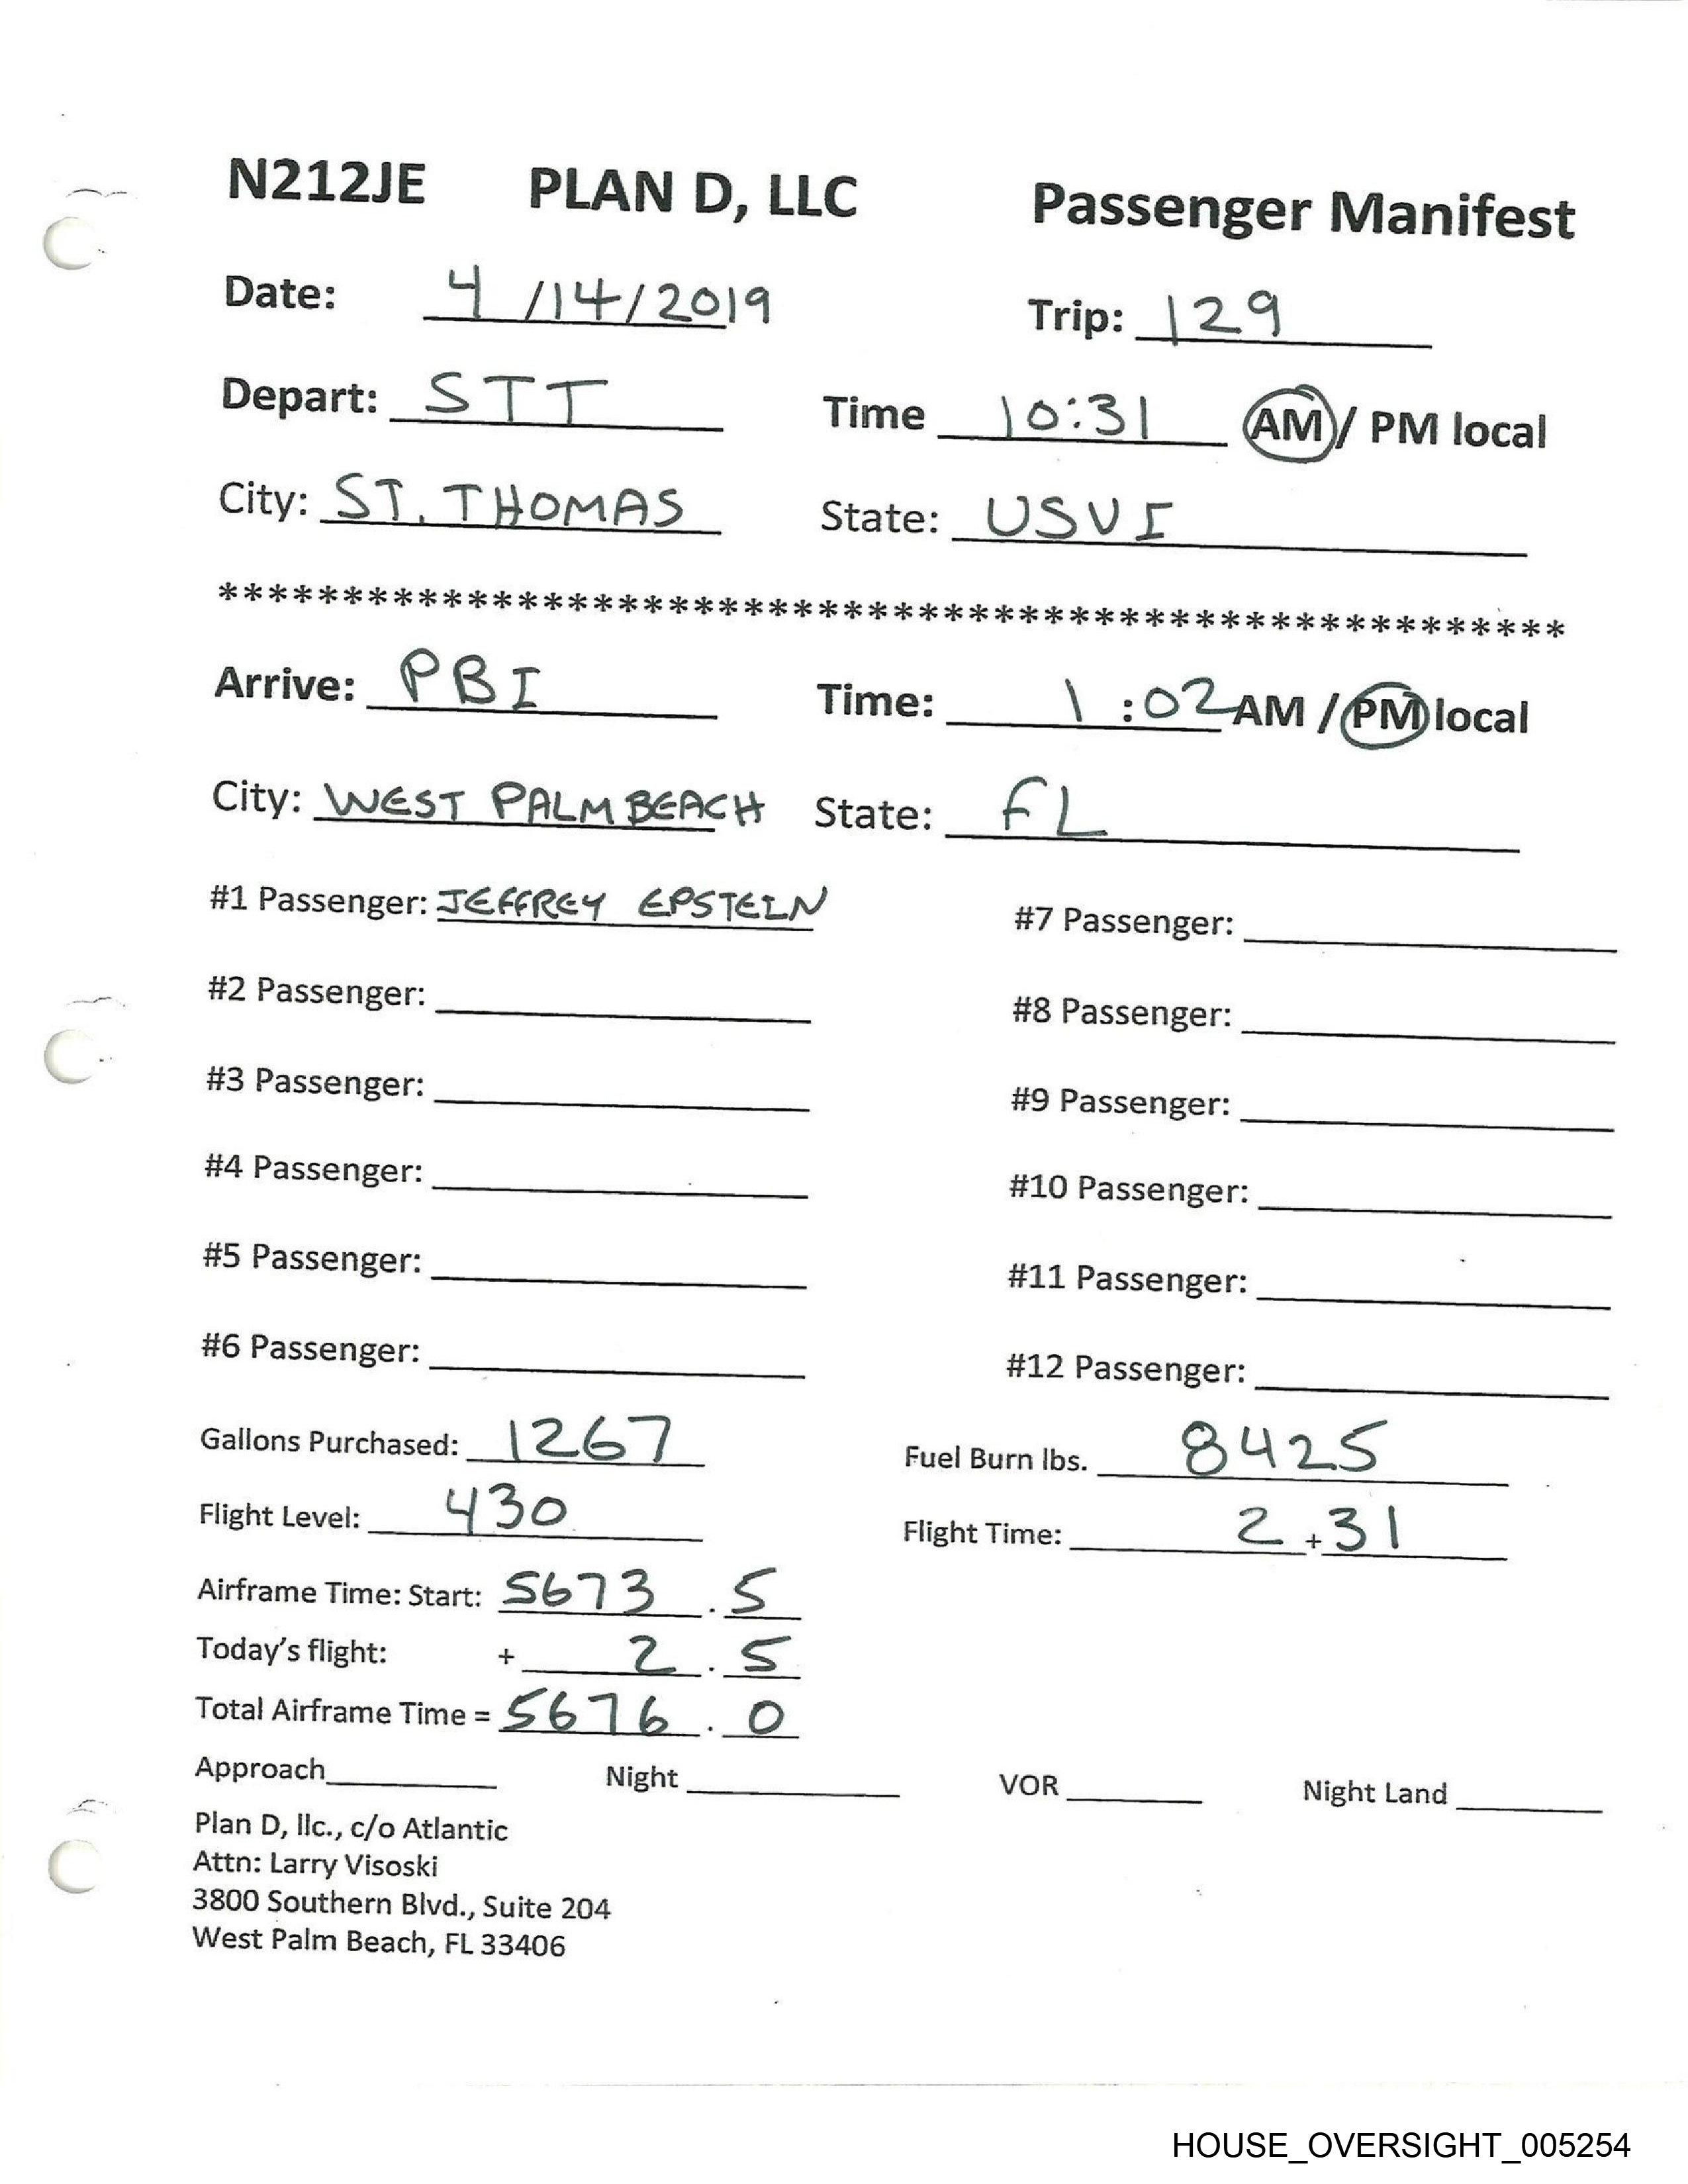 N212JE PLAN D, LLC Passenger Manifest
Date: 4/14/2019 Trip: 129
Depart: STT Time 10:31 AM / PM local
City: ST. THOMAS State: USVI
******************************************************
Arrive: PBI Time: 1:02 AM / PM local
City: WEST PALM BEACH State: FL
#1 Passenger: JEFFREY EPSTEIN #7 Passenger:
#2 Passenger: #8 Passenger:
#3 Passenger: #9 Passenger:
#4 Passenger: #10 Passenger:
#5 Passenger: #11 Passenger:
#6 Passenger: #12 Passenger:
Gallons Purchased: 1267 Fuel Burn lbs. 8425
Flight Level: 430 Flight Time: 2 + 31
Airframe Time: Start: 5673 . 5
Today's flight: + 2 . 5
Total Airframe Time = 5676 . 0
Approach Night VOR Night Land
Plan D, llc., c/o Atlantic
Attn: Larry Visoski
3800 Southern Blvd., Suite 204
West Palm Beach, FL 33406
HOUSE_OVERSIGHT_005254